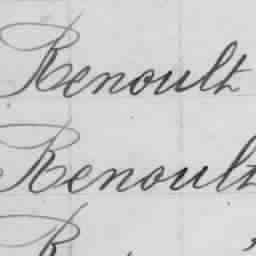 Renoult
Renoult
R